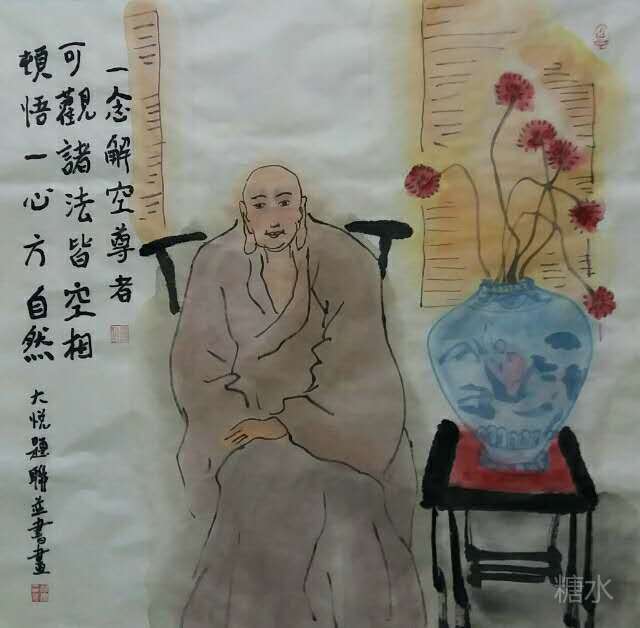 一念解空尊者
可觀諸法皆空相
頓悟一心方自然
大悦題聯並書畫
糖水